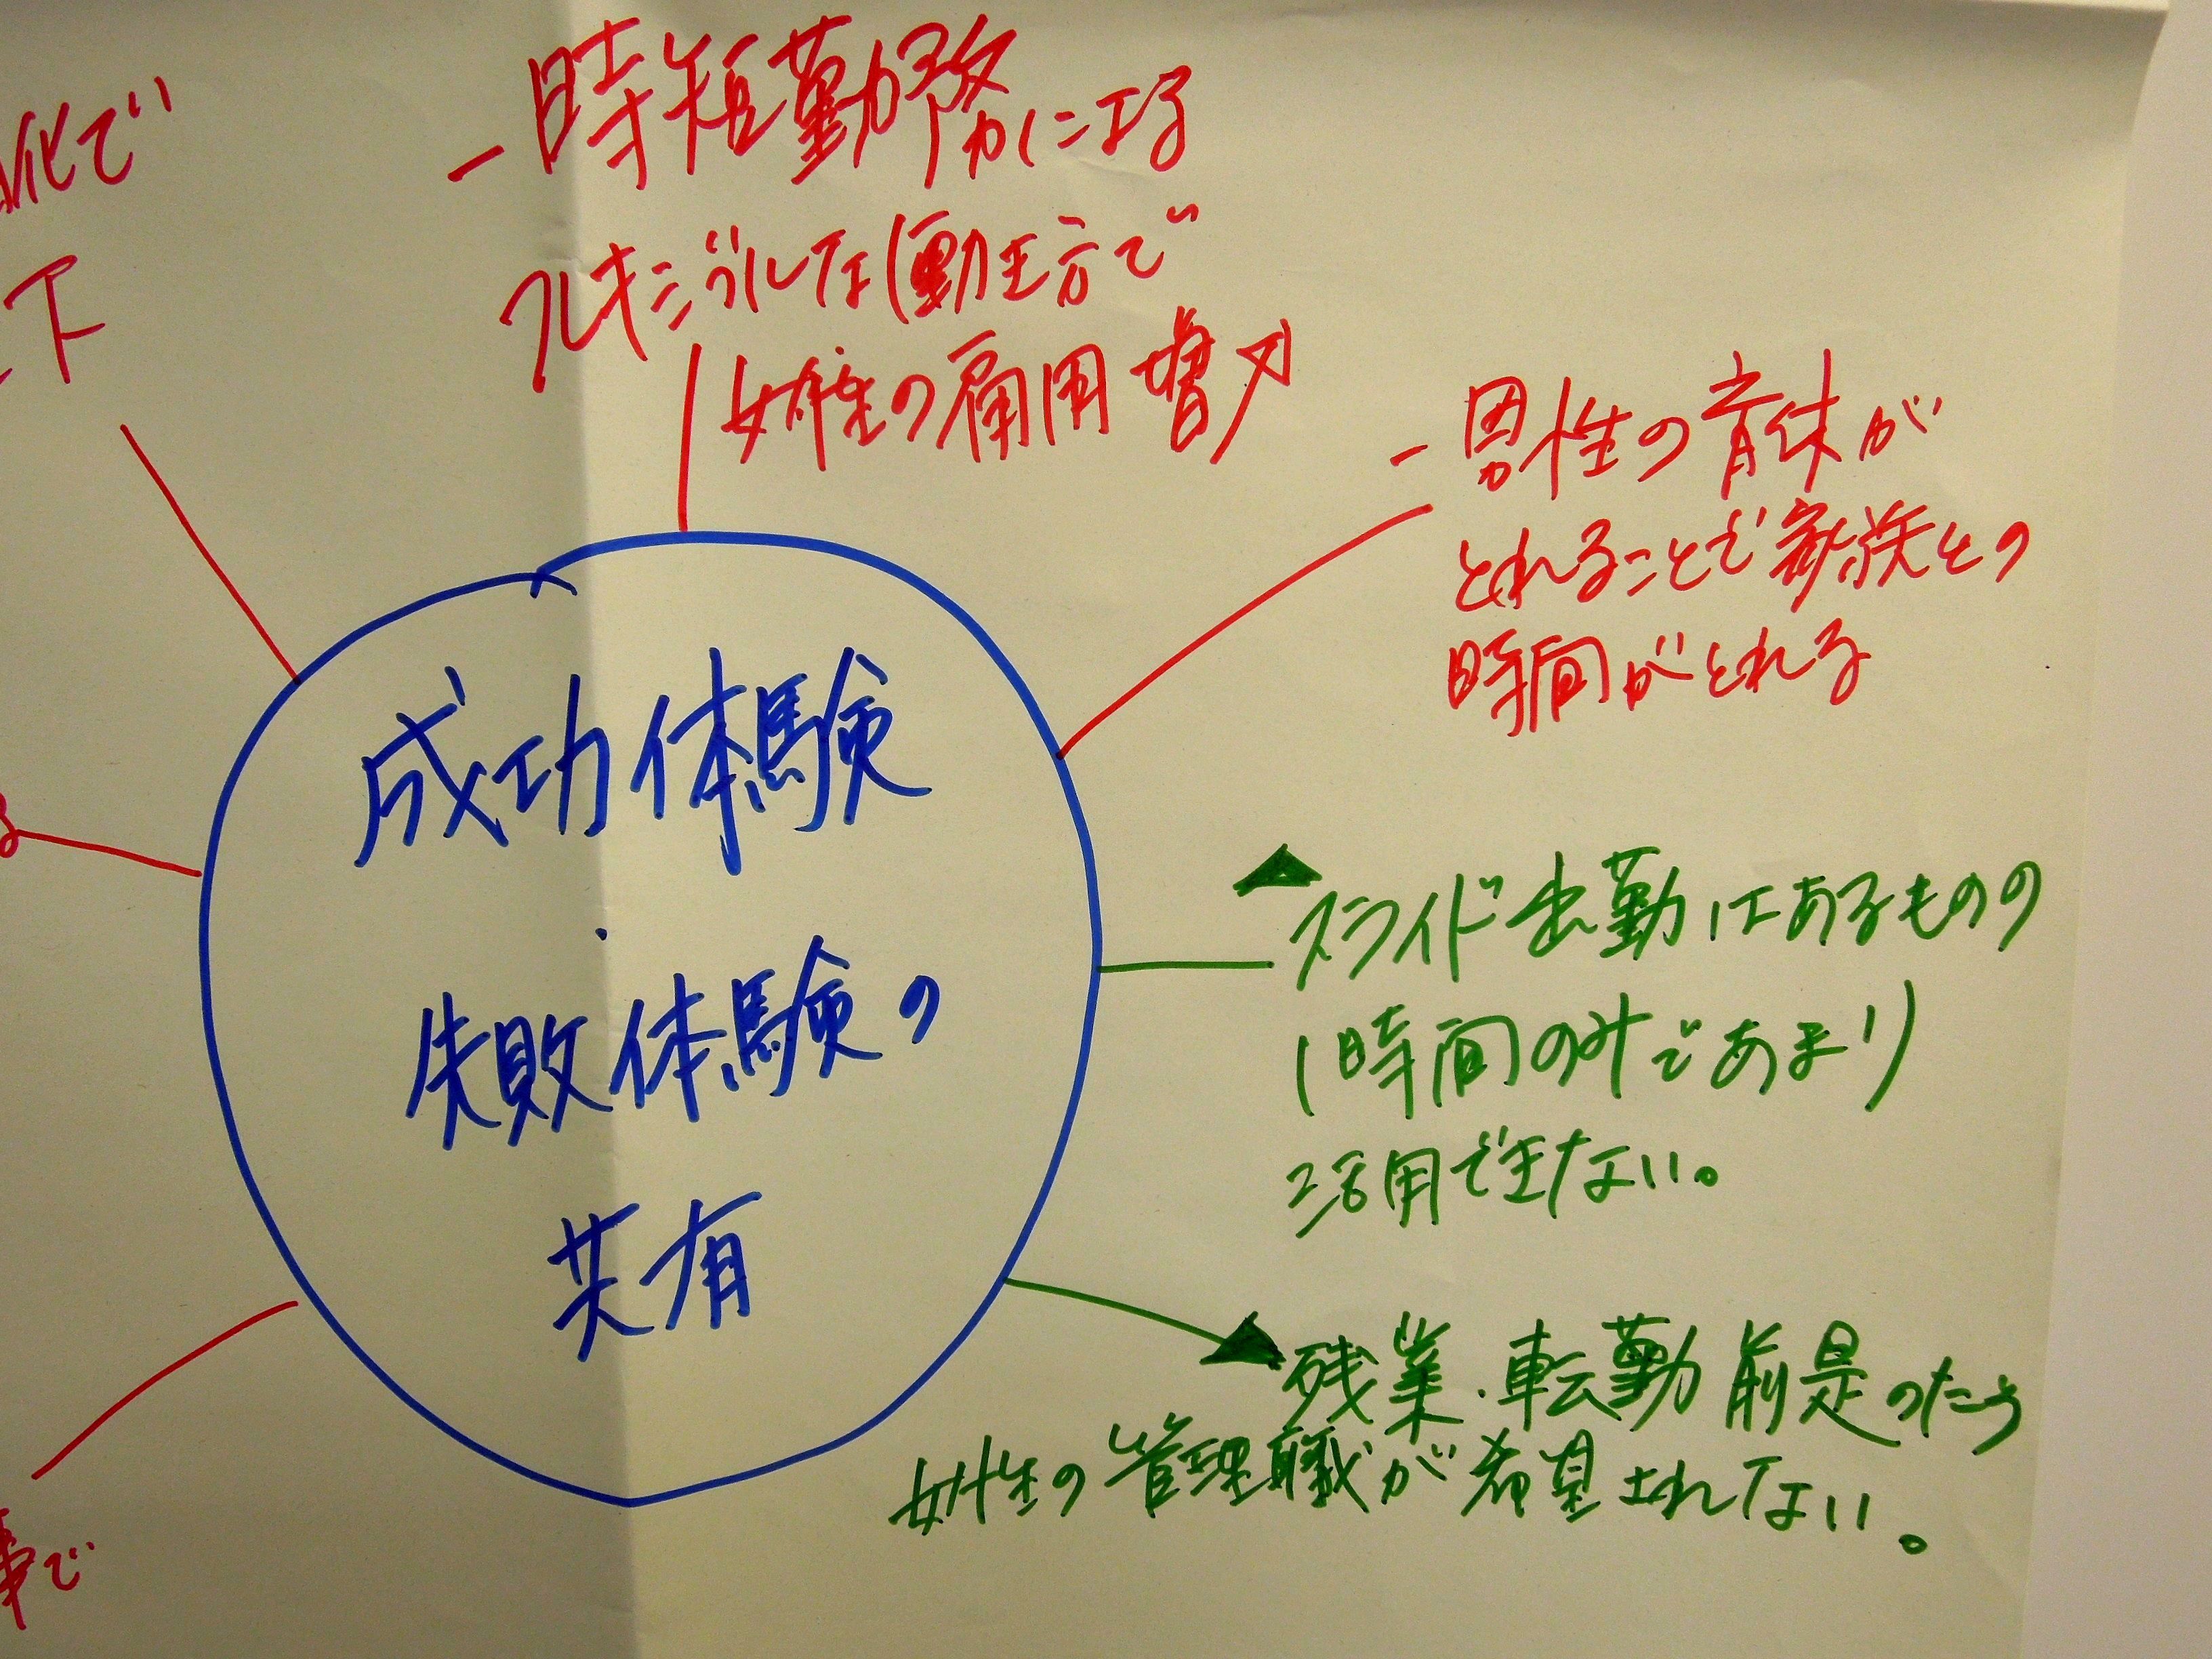 化で
下
時短勤務による
フレキシブルな働き方で
女性の雇用増加
男性の育休が
とれることで家族との
時間がとれる
成功体験
・
失敗体験の
共有
▲
スライド出勤はあるものの
1時間のみであまり
活用できない。
▲残業・転勤前提のため
女性の管理職が希望されない。
る
事で